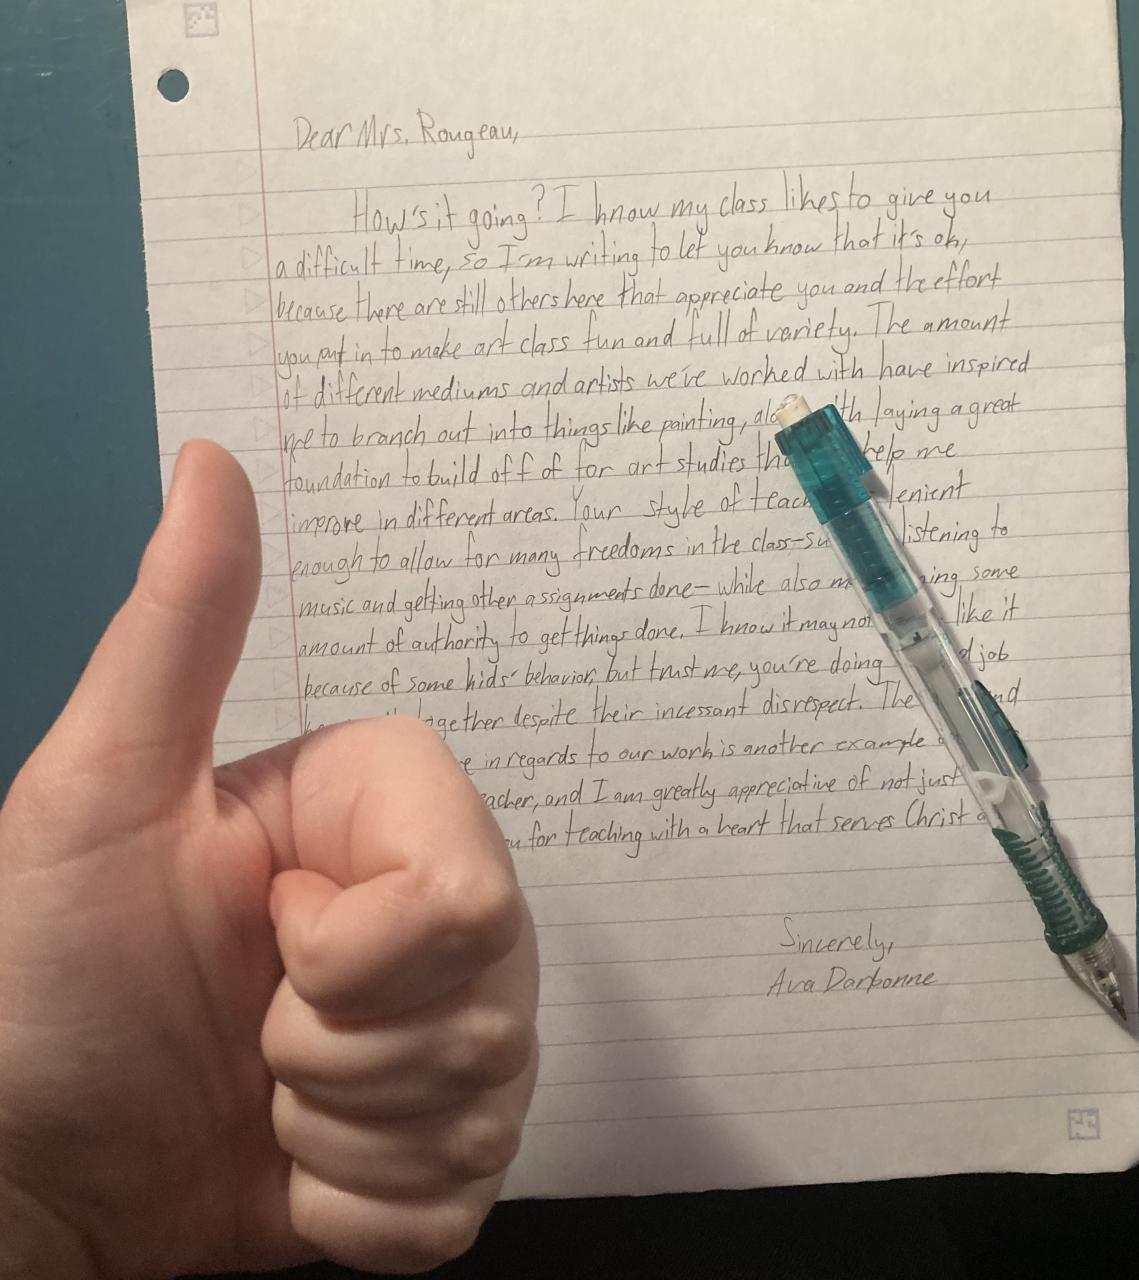 Dear Mrs. Rougeau,
How's it going? I know my class likes to give you
a difficult time, so I'm writing to let you know that it's ok,
because there are still others here that appreciate you and the effort
you put in to make art class fun and full of variety. The amount
of different mediums and artists we've worked with have inspired
me to branch out into things like painting, laying a great
foundation to build off of for art studies help me
improve in different areas. Your style of lenient
enough to allow for many freedoms in the class- listening to
music and getting other assignments done- while also some
amount of authority to get things done. I know it may like it
because of some kids' behavior, but trust me, you're doing job
together despite their incessant disrespect. The
in regards to our work is another example
and I am greatly appreciative of not just
for teaching with a heart that serves Christ
Sincerely,
Ava Darbonne